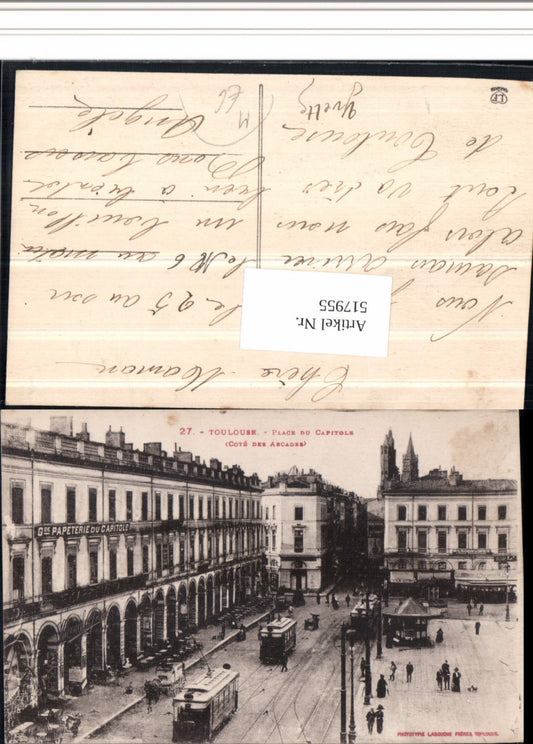 Chère Maman
Nous le 25 au soir
arrive au matin
alors fais nous un bouillon
tout va très bien à bientôt
de Toulouse Bons baisers
Yvette Angèle
Artikel Nr.
517955
27. - TOULOUSE. - PLACE DU CAPITOLE
(COTÉ DES ARCADES)
GDE PAPETERIE DU CAPITOLE
PHOTOTYPIE LABOUCHE FRÈRES, TOULOUSE.